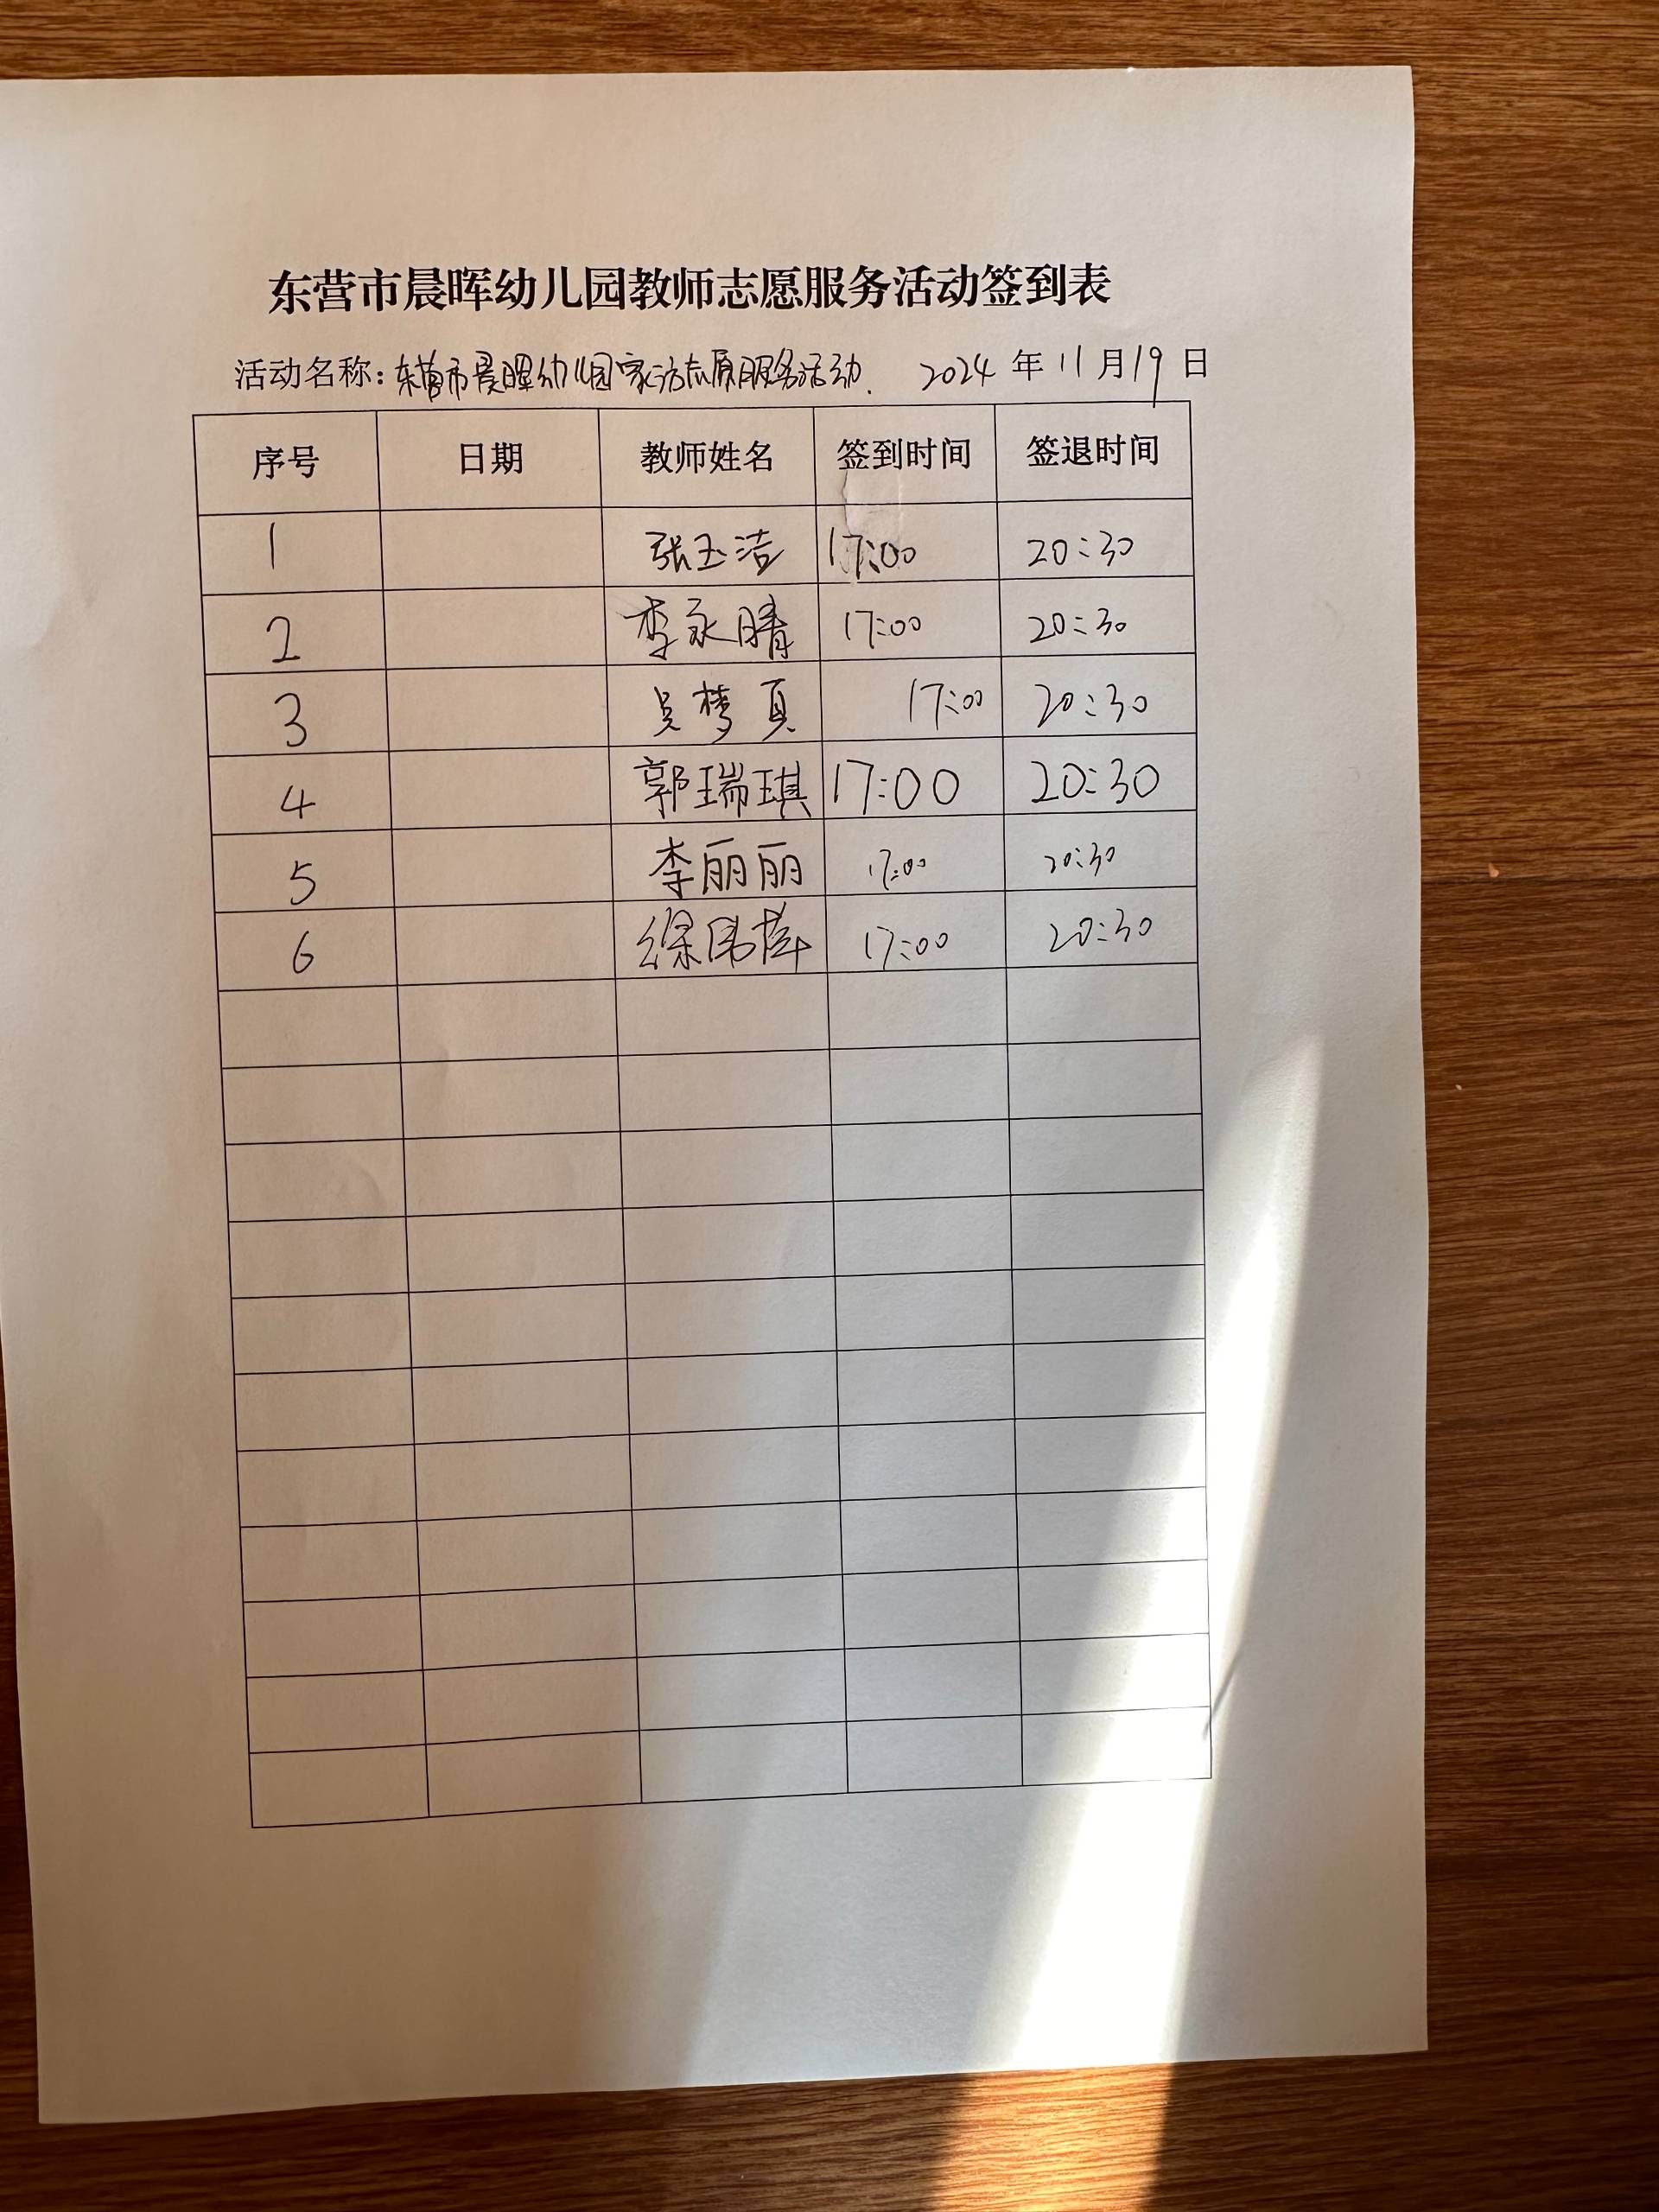 东营市晨晖幼儿园教师志愿服务活动签到表
活动名称：东营市晨晖幼儿园家访志愿服务活动. 2024 年 11 月 19 日
序号 日期 教师姓名 签到时间 签退时间
1 张玉洁 17:00 20:30
2 李永晴 17:00 20:30
3 吴梦真 17:00 20:30
4 郭瑞琪 17:00 20:30
5 李丽丽 17:00 20:30
6 17:00 20:30